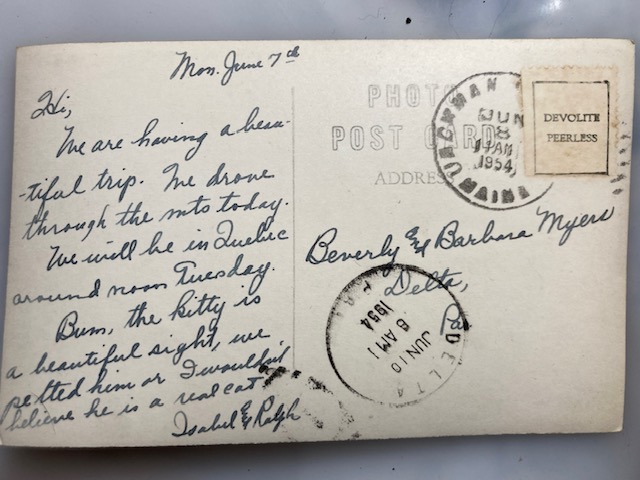 Mon. June 7th
Hi,
We are having a beau-
-tiful trip. We drove
through the mts today.
We will be in Quebec
around noon Tuesday.
Bum, the kitty is
a beautiful sight, we
petted him or I wouldn't
believe he is a real cat.
Isabel & Ralph
PHOTO
POST CARD
ADDRESS
JUN
8
1954
MAINE
DEVOLITE
PEERLESS
Beverly & Barbara Myers
Delta,
Pa.
DELTA
JUN 10
8 AM
1954
PA